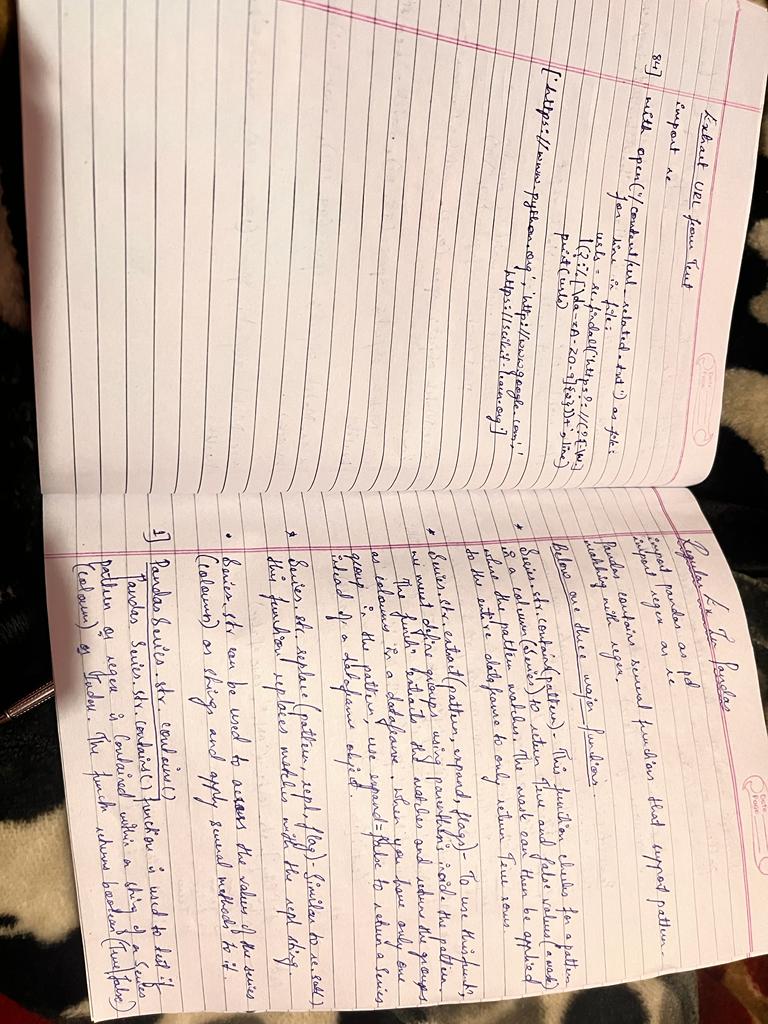 Extract URL from Text
import re
84] with open("/content/url_related.txt") as file:
for line in file:
urls = re.findall('https?://(?:[-\w.]
|(?:%[\da-zA-Z0-9]{2}))+', line)
print(urls)
['https://www.python.org', 'http://www.google.com', '
https://scikit-learn.org']
Date
Page
Regular Ex In Pandas
import pandas as pd
import regex as re
Pandas contains several functions that support pattern-
matching with regex.
Below are three major functions.
* Series.str.contains(pattern) - This function checks for a pattern
in a column (Series) to return True and false values (a mask)
where the pattern matches. The mask can then be applied
to the entire dataframe to only return True rows.
* Series.str.extract(pattern, expand, flags) - To use this funct,
we must define groups using parenthesis inside the pattern.
The function extracts the matches and returns the groups
as columns in a dataframe. When you have only one
group in the pattern, use expand=False to return a series
instead of a dataframe object.
* Series.str.replace(pattern, repl, flag) - Similar to re.sub()
this function replaces matches with the repl string.
• Series.str can be used to access the values of the series
(column) as strings and apply several methods to it.
1] Pandas Series.str.contains()
Pandas Series.str.contains() function is used to test if
pattern or regex is contained within a string of a Series
(column) or Index. The funct returns boolean (True/False)
Date
Page